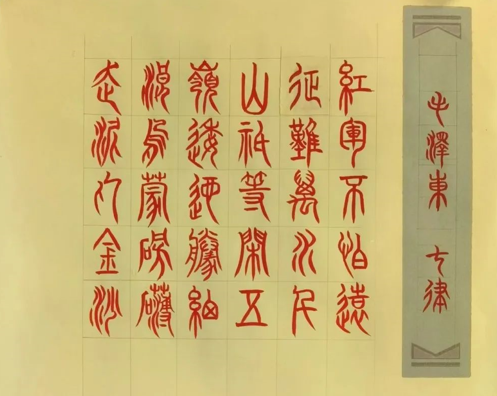 毛澤東 七律
紅軍不怕遠
征難萬水千
山祇等閑五
嶺逶迤騰細
浪烏蒙磅礴
走泥丸金沙